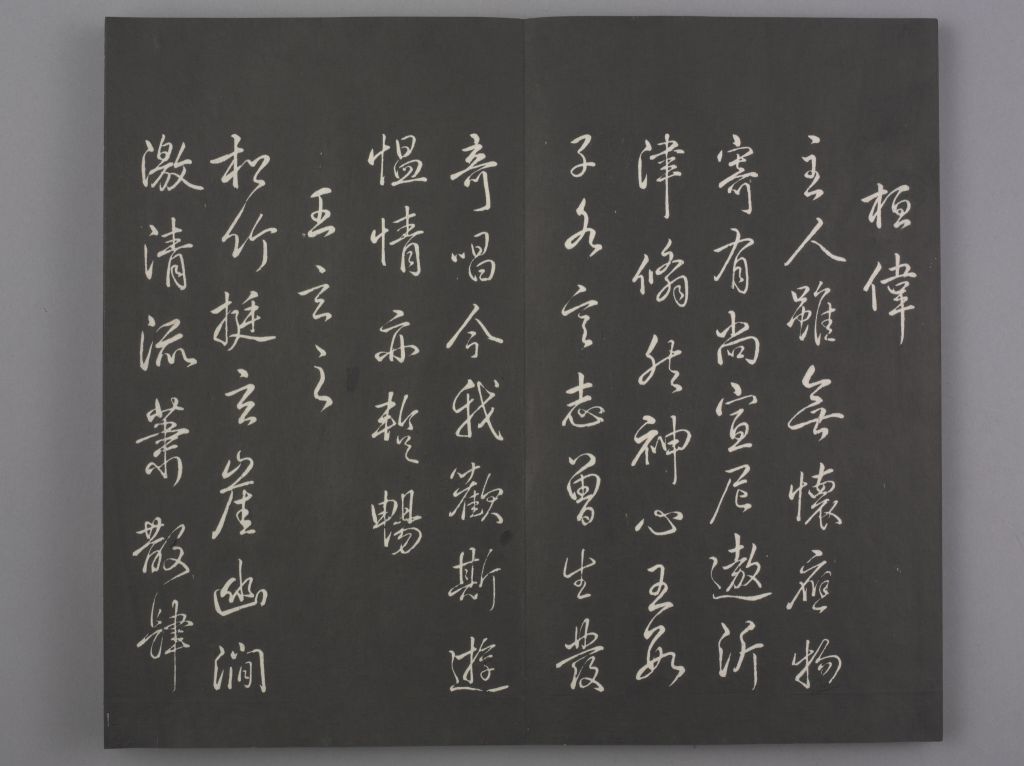 桓偉
主人雖無懷應物
寄有尚宣尼遨沂
津翛然神心王數
子各言志曾生發
奇唱今我歡斯遊
慍情亦蹔暢
王玄之
松竹挺玄崖幽澗
激清流蕭散肆